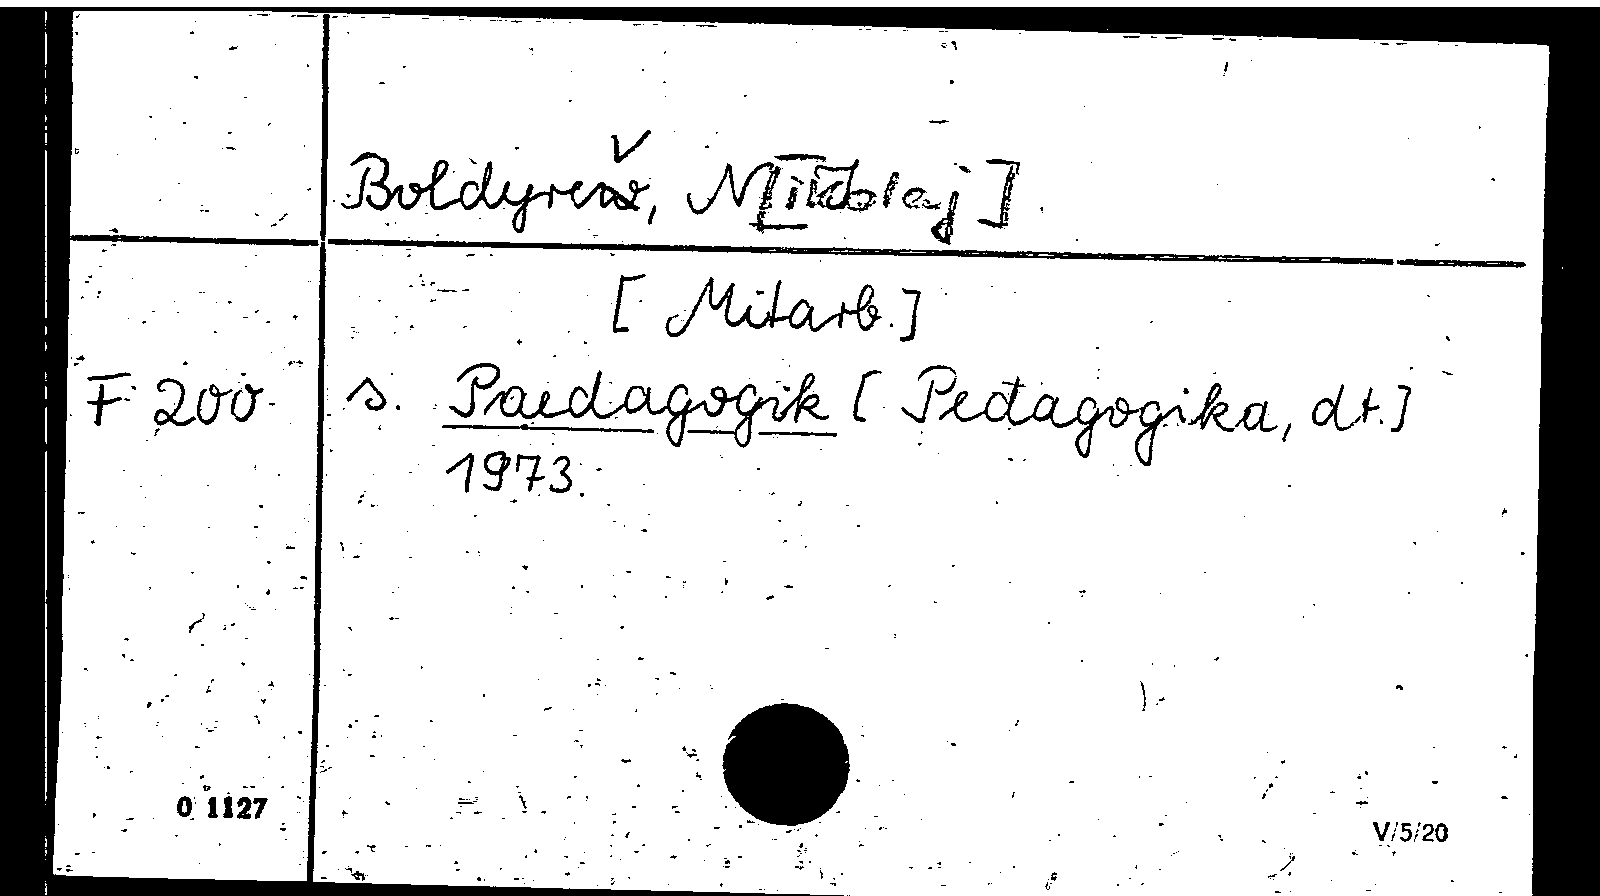 Boldyrev, N[ikolaj]
[Mitarb.]
F 200 s. Paedagogik [Pedagogika, dt.]
1973.
0 1127
V/5/20